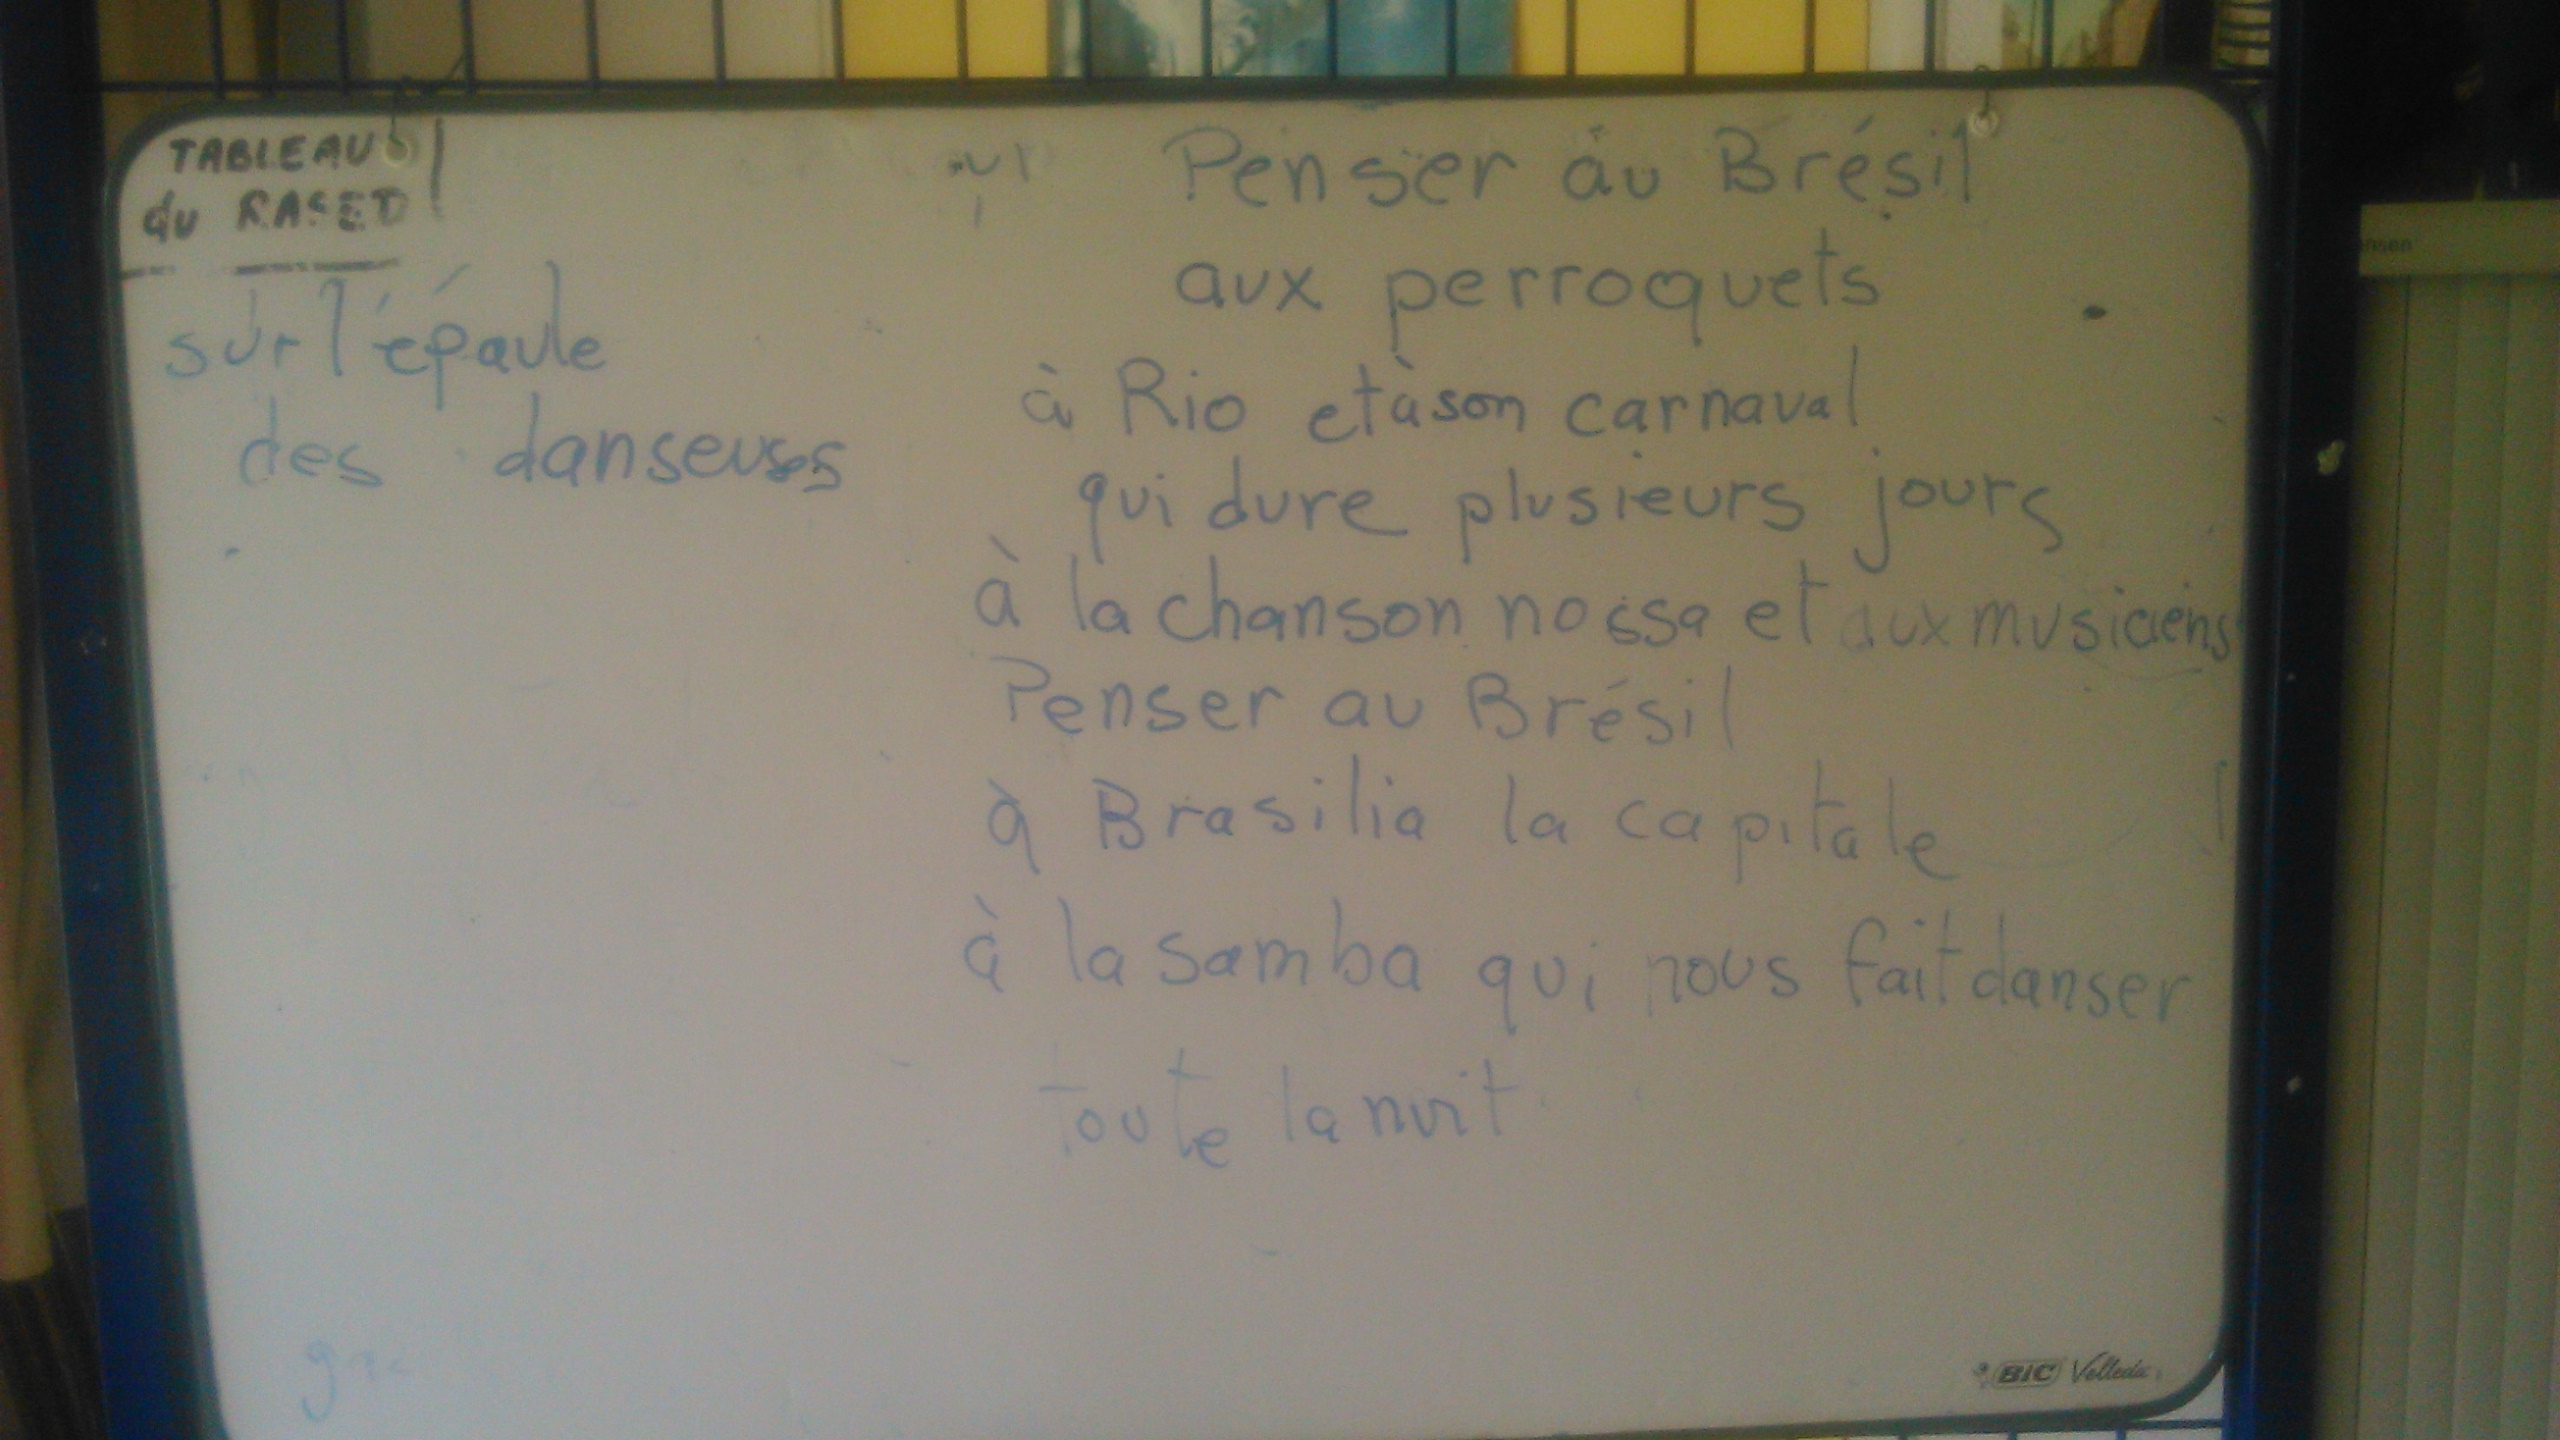 TABLEAU
du RASED
sur l'épaule
des danseuses
Penser au Brésil
aux perroquets
à Rio et à son carnaval
qui dure plusieurs jours
à la chanson nossa et aux musiciens
Penser au Brésil
à Brasilia la capitale
à la samba qui nous fait danser
toute la nuit
BIC Velleda